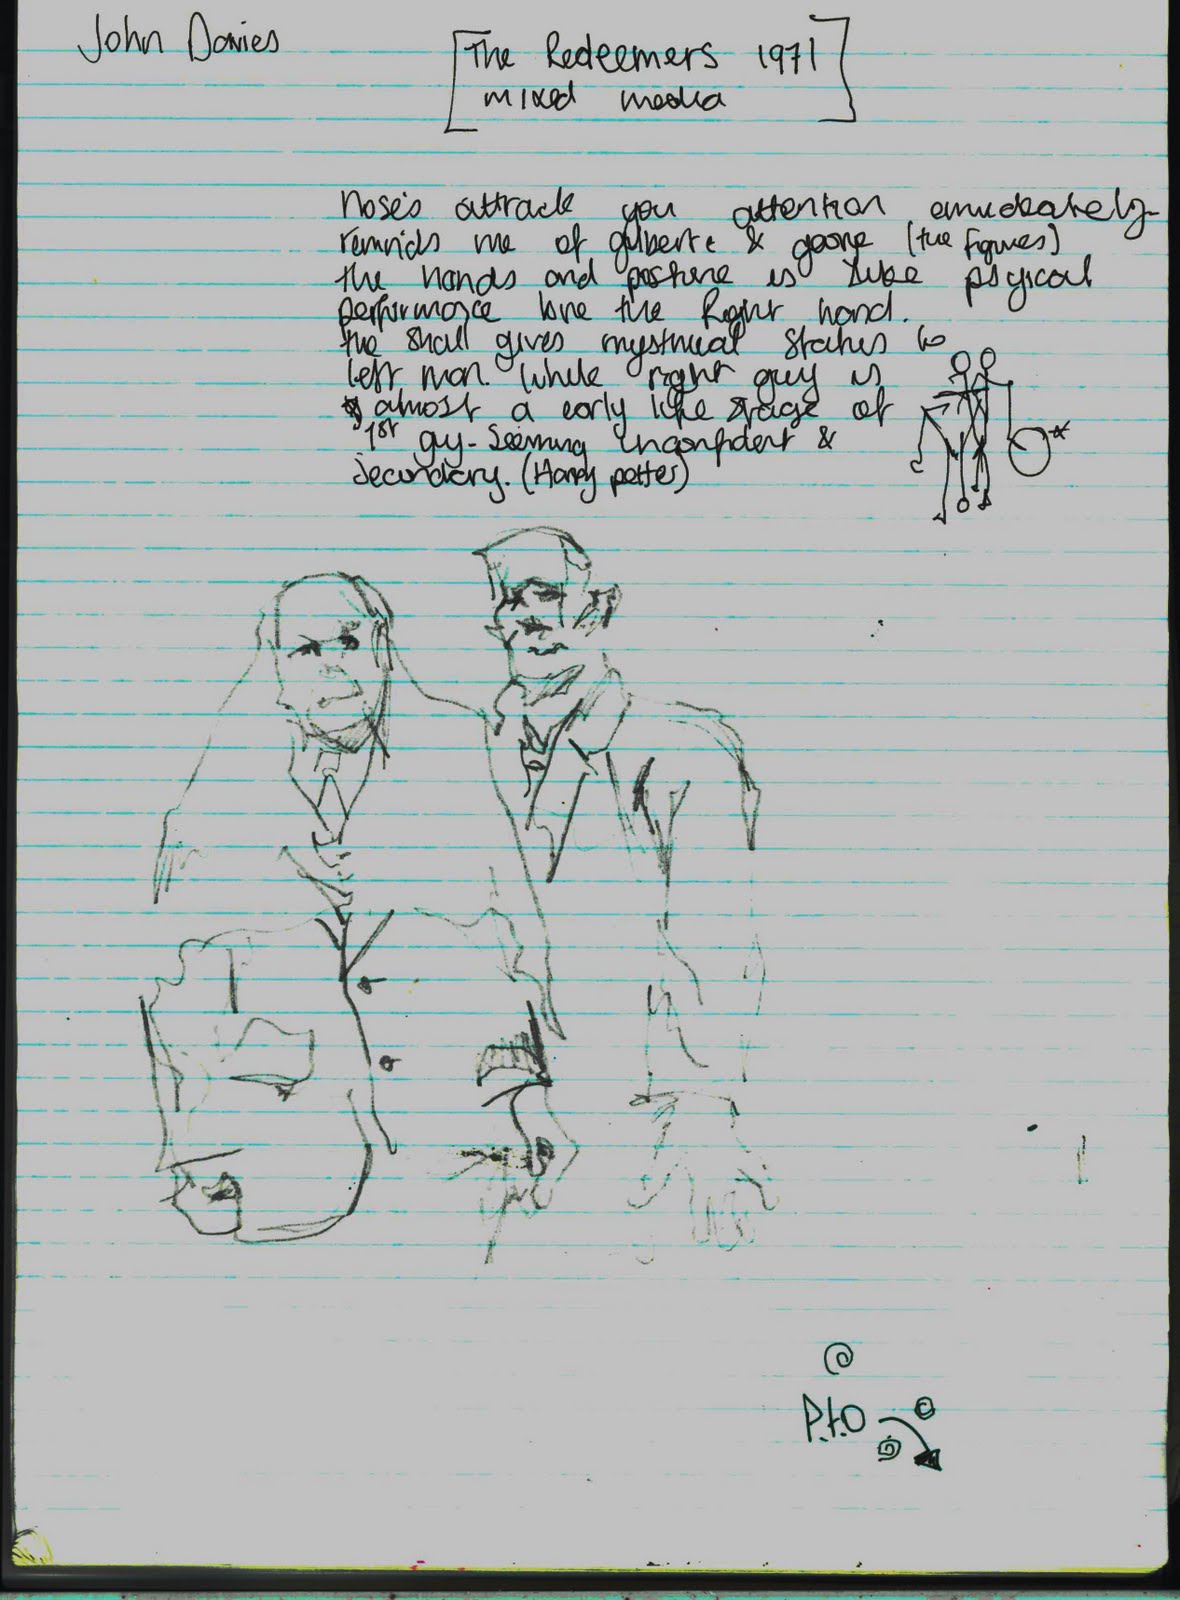 John Davies
[The Redeemers 1971]
mixed media
Noses attrack you attention emideately-
reminds me of gilberte & goorge (the figures)
the hands and posture is like psgical
performasce like the Right hand.
the shall gives mystrical status to
left man. While right guy is
almost a early life stage of
1st guy - Seeming inconfident &
secondary. (Harry potter)
P.t.O